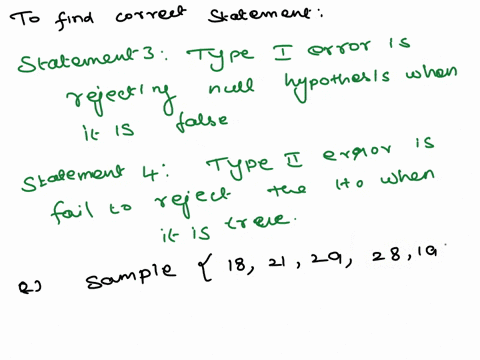 To find correct Statement:
Statement 3: Type I error is
rejecting null hypothesis when
it is false
Statement 4: Type II error is
fail to reject the Ho when
it is true.
Q) Sample { 18, 21, 29, 28, 19